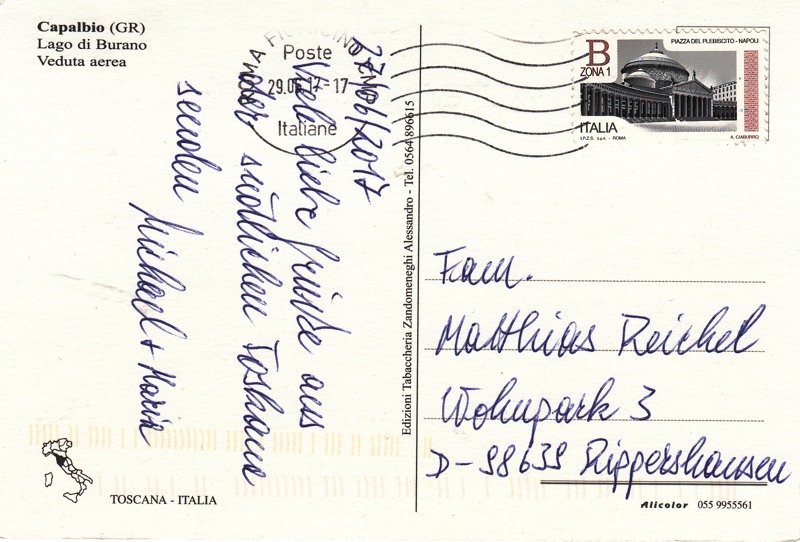 Capalbio (GR)
Lago di Burano
Veduta aerea
27/06/2017
Viele liebe Grüße aus
der südlichen Toskana
senden
Michael + Maria
TOSCANA - ITALIA
Edizioni Tabaccheria Zandomeneghi Alessandro - Tel. 0564 896615
FIUMICINO
Poste
17-17
Italiane
B
ZONA 1
PIAZZA DEL PLEBISCITO - NAPOLI
ITALIA
I.P.Z.S. S.p.A. - ROMA
A. CIABURRO
Fam.
Matthias Reichel
Wohnpark 3
D-98639 Rippershausen
Alicolor 055 9955561